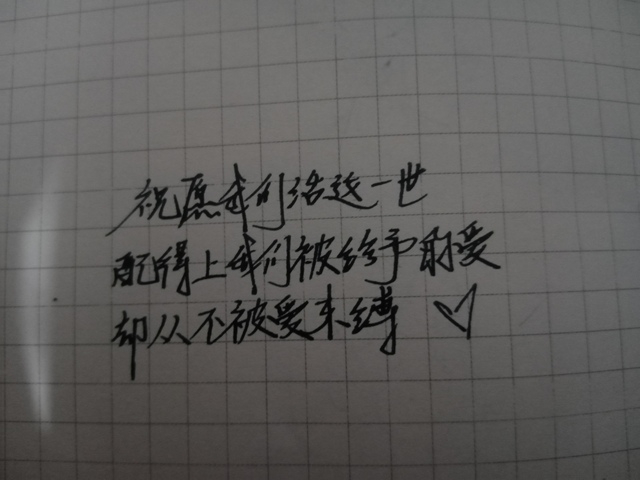 祝愿我们活这一世
配得上我们被给予的爱
却从不被爱束缚 ♡